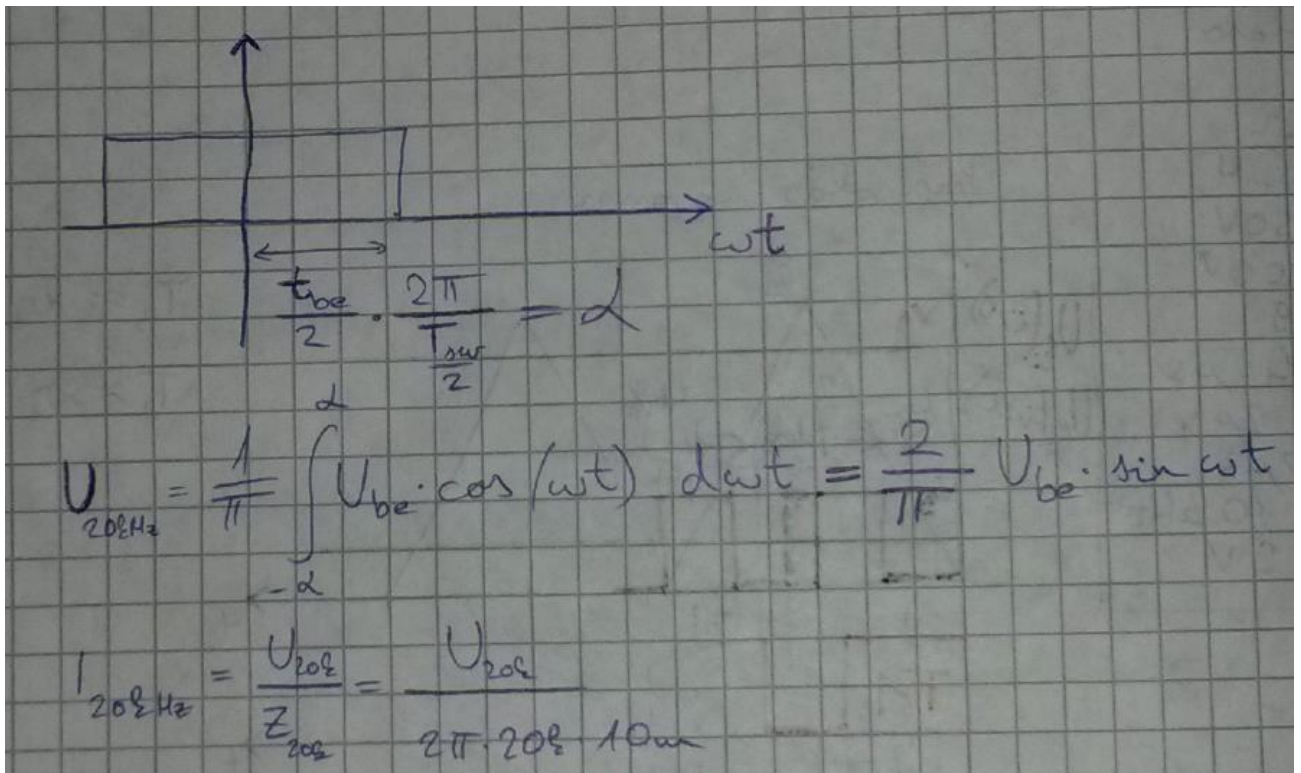 ωt
t_be/2 · 2π/(T_sw/2) = α
U_20kHz = 1/π ∫_-α^α U_be · cos(ωt) dωt = 2/π U_be · sin ωt
I_20kHz = U_20k/Z_20k = U_20k/(2π·20k 10m)